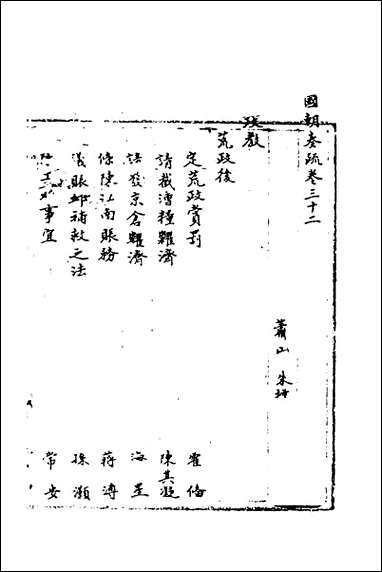 國朝奏疏卷三十二
蕭山 朱
政教
荒政後
定荒政賞罰 霍 備
請截漕種糶濟 陳其凝
請發京倉糶濟 海 望
條陳江南賑務 蔣 溥
議賑邺補救之法 孫 灝
事宜 常 安